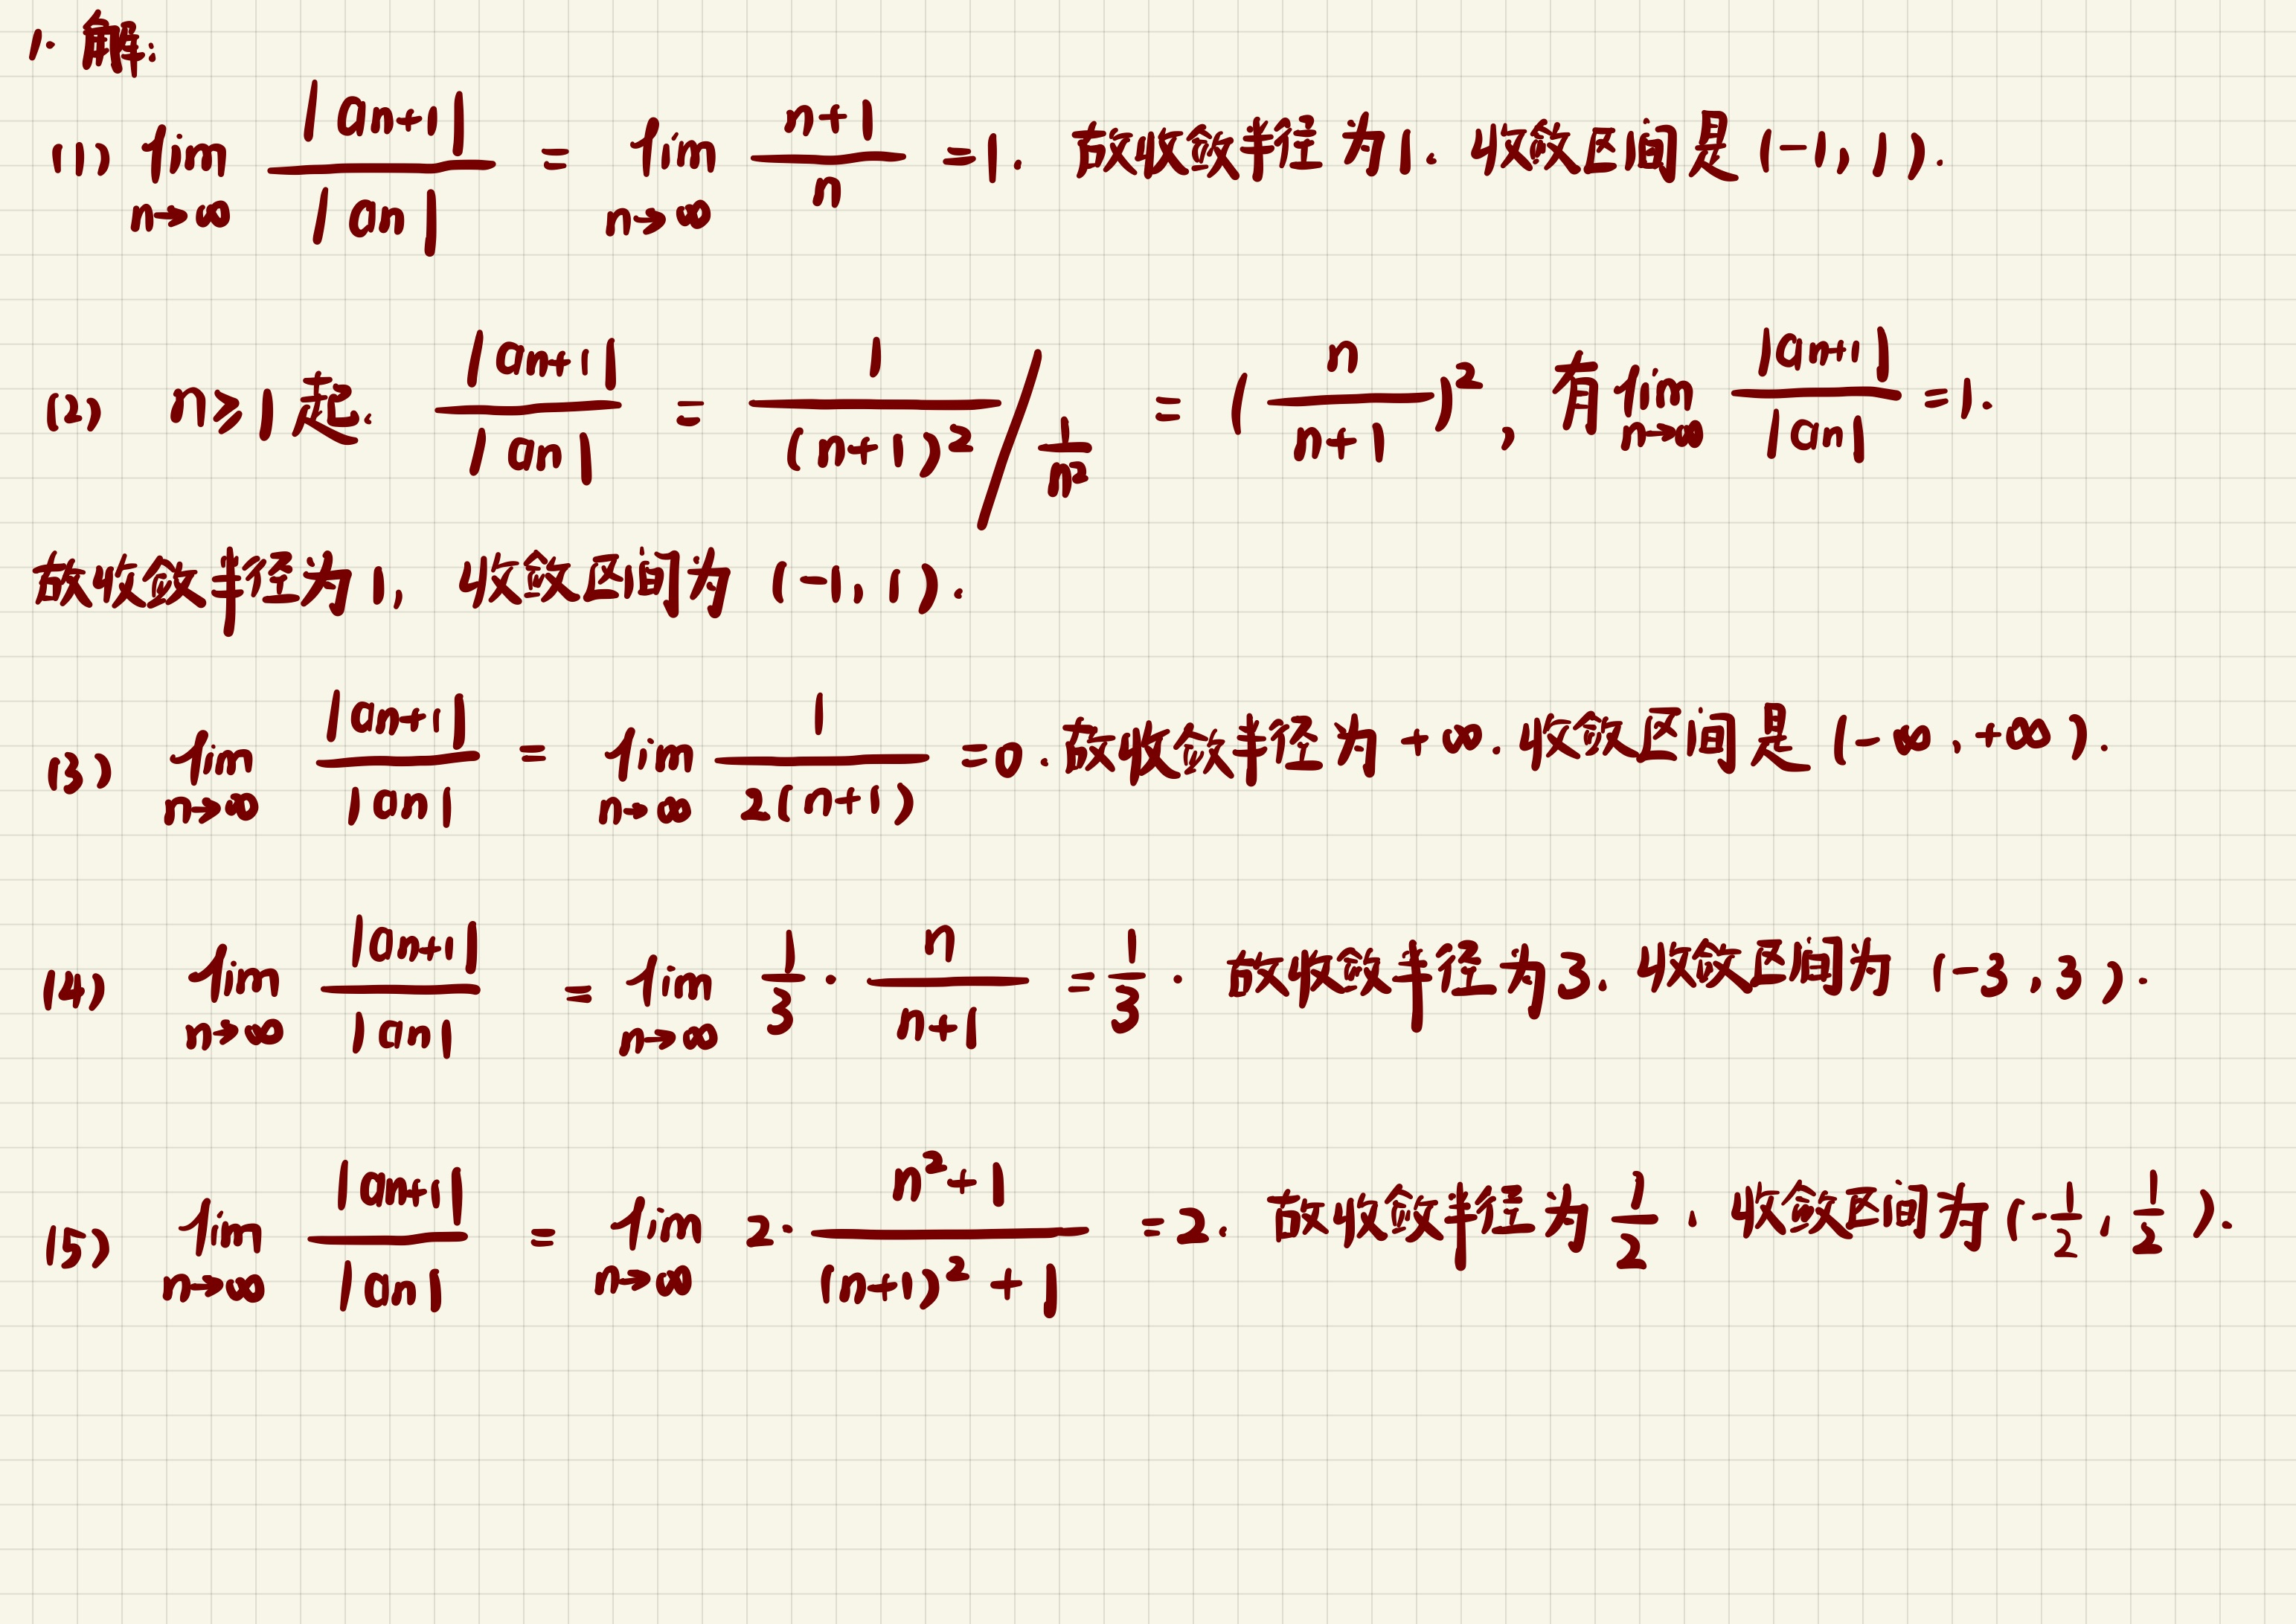 1. 解:
(1) lim_{n→∞} |an+1| / |an| = lim_{n→∞} (n+1)/n = 1. 故收敛半径为1. 收敛区间是(-1,1).
(2) n≥1起. |an+1| / |an| = 1/(n+1)² / 1/n² = (n/(n+1))², 有lim_{n→∞} |an+1| / |an| = 1.
故收敛半径为1, 收敛区间为(-1,1).
(3) lim_{n→∞} |an+1| / |an| = lim_{n→∞} 1/(2(n+1)) = 0. 故收敛半径为+∞. 收敛区间是(-∞,+∞).
(4) lim_{n→∞} |an+1| / |an| = lim_{n→∞} 1/3 · n/(n+1) = 1/3. 故收敛半径为3. 收敛区间为(-3,3).
(5) lim_{n→∞} |an+1| / |an| = lim_{n→∞} 2· (n²+1)/((n+1)²+1) = 2. 故收敛半径为1/2. 收敛区间为(-1/2,1/2).